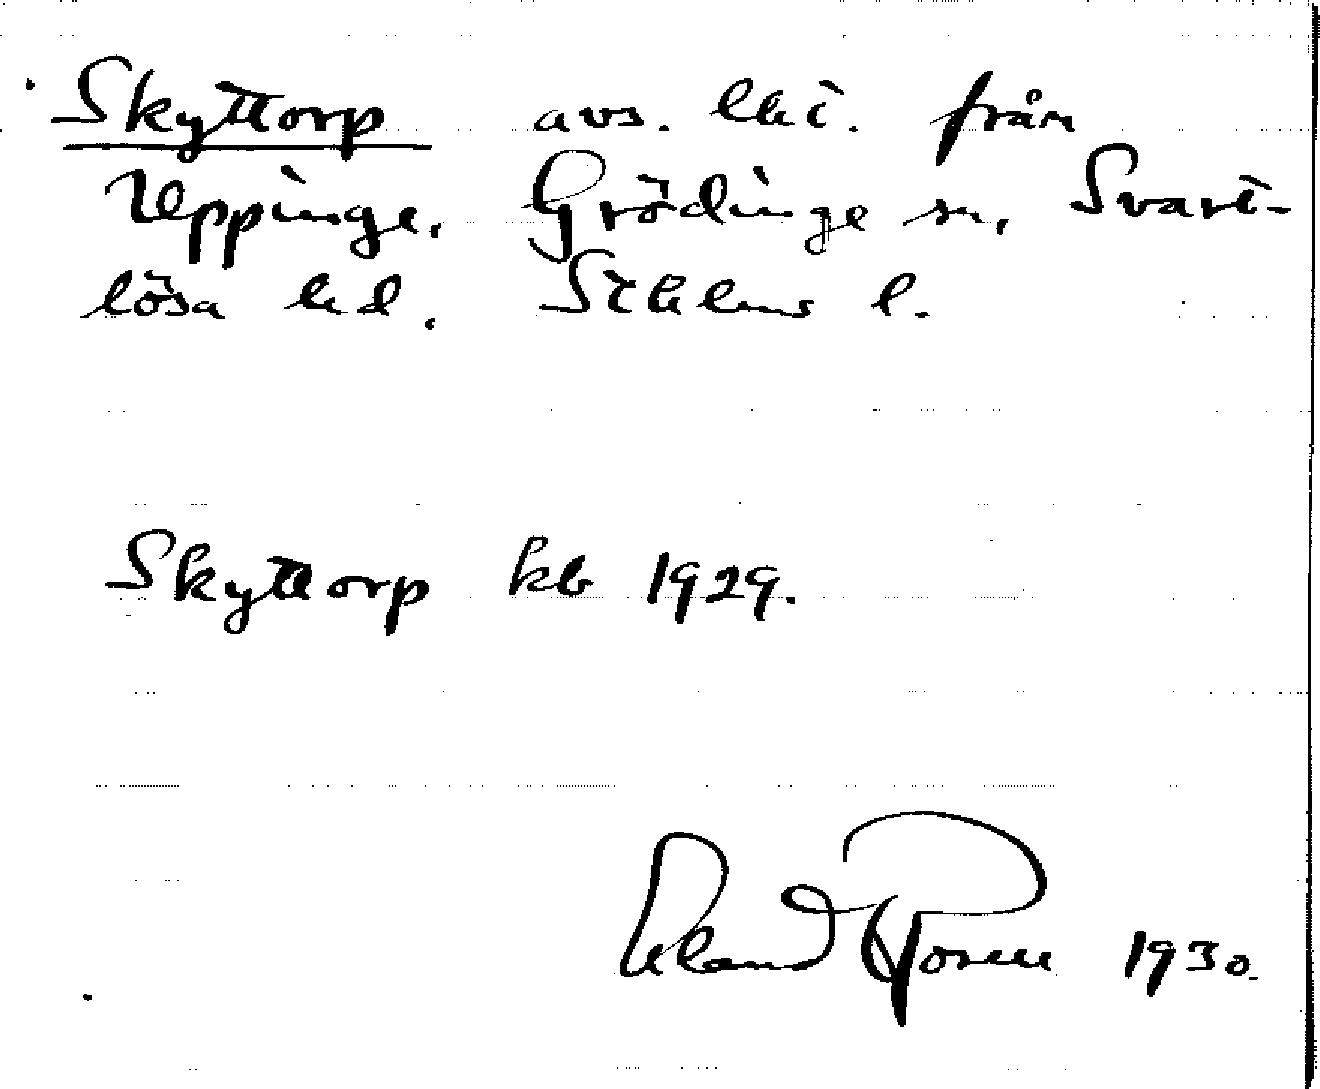 Skyttorp avs. lht. från
Uppinge, Grödinge sn, Svart-
lösa hd, Sthlms l.
Skyttorp kb 1929.
Rosen 1930.